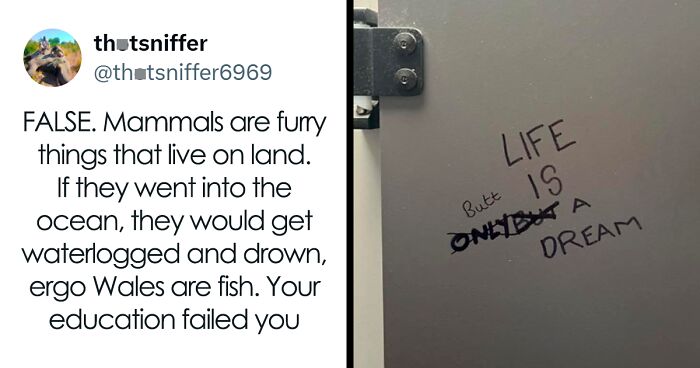 th tsniffer
@th tsniffer6969
FALSE. Mammals are furry
things that live on land.
If they went into the
ocean, they would get
waterlogged and drown,
ergo Wales are fish. Your
education failed you
LIFE
IS
Butt
ONLY BUT A
DREAM